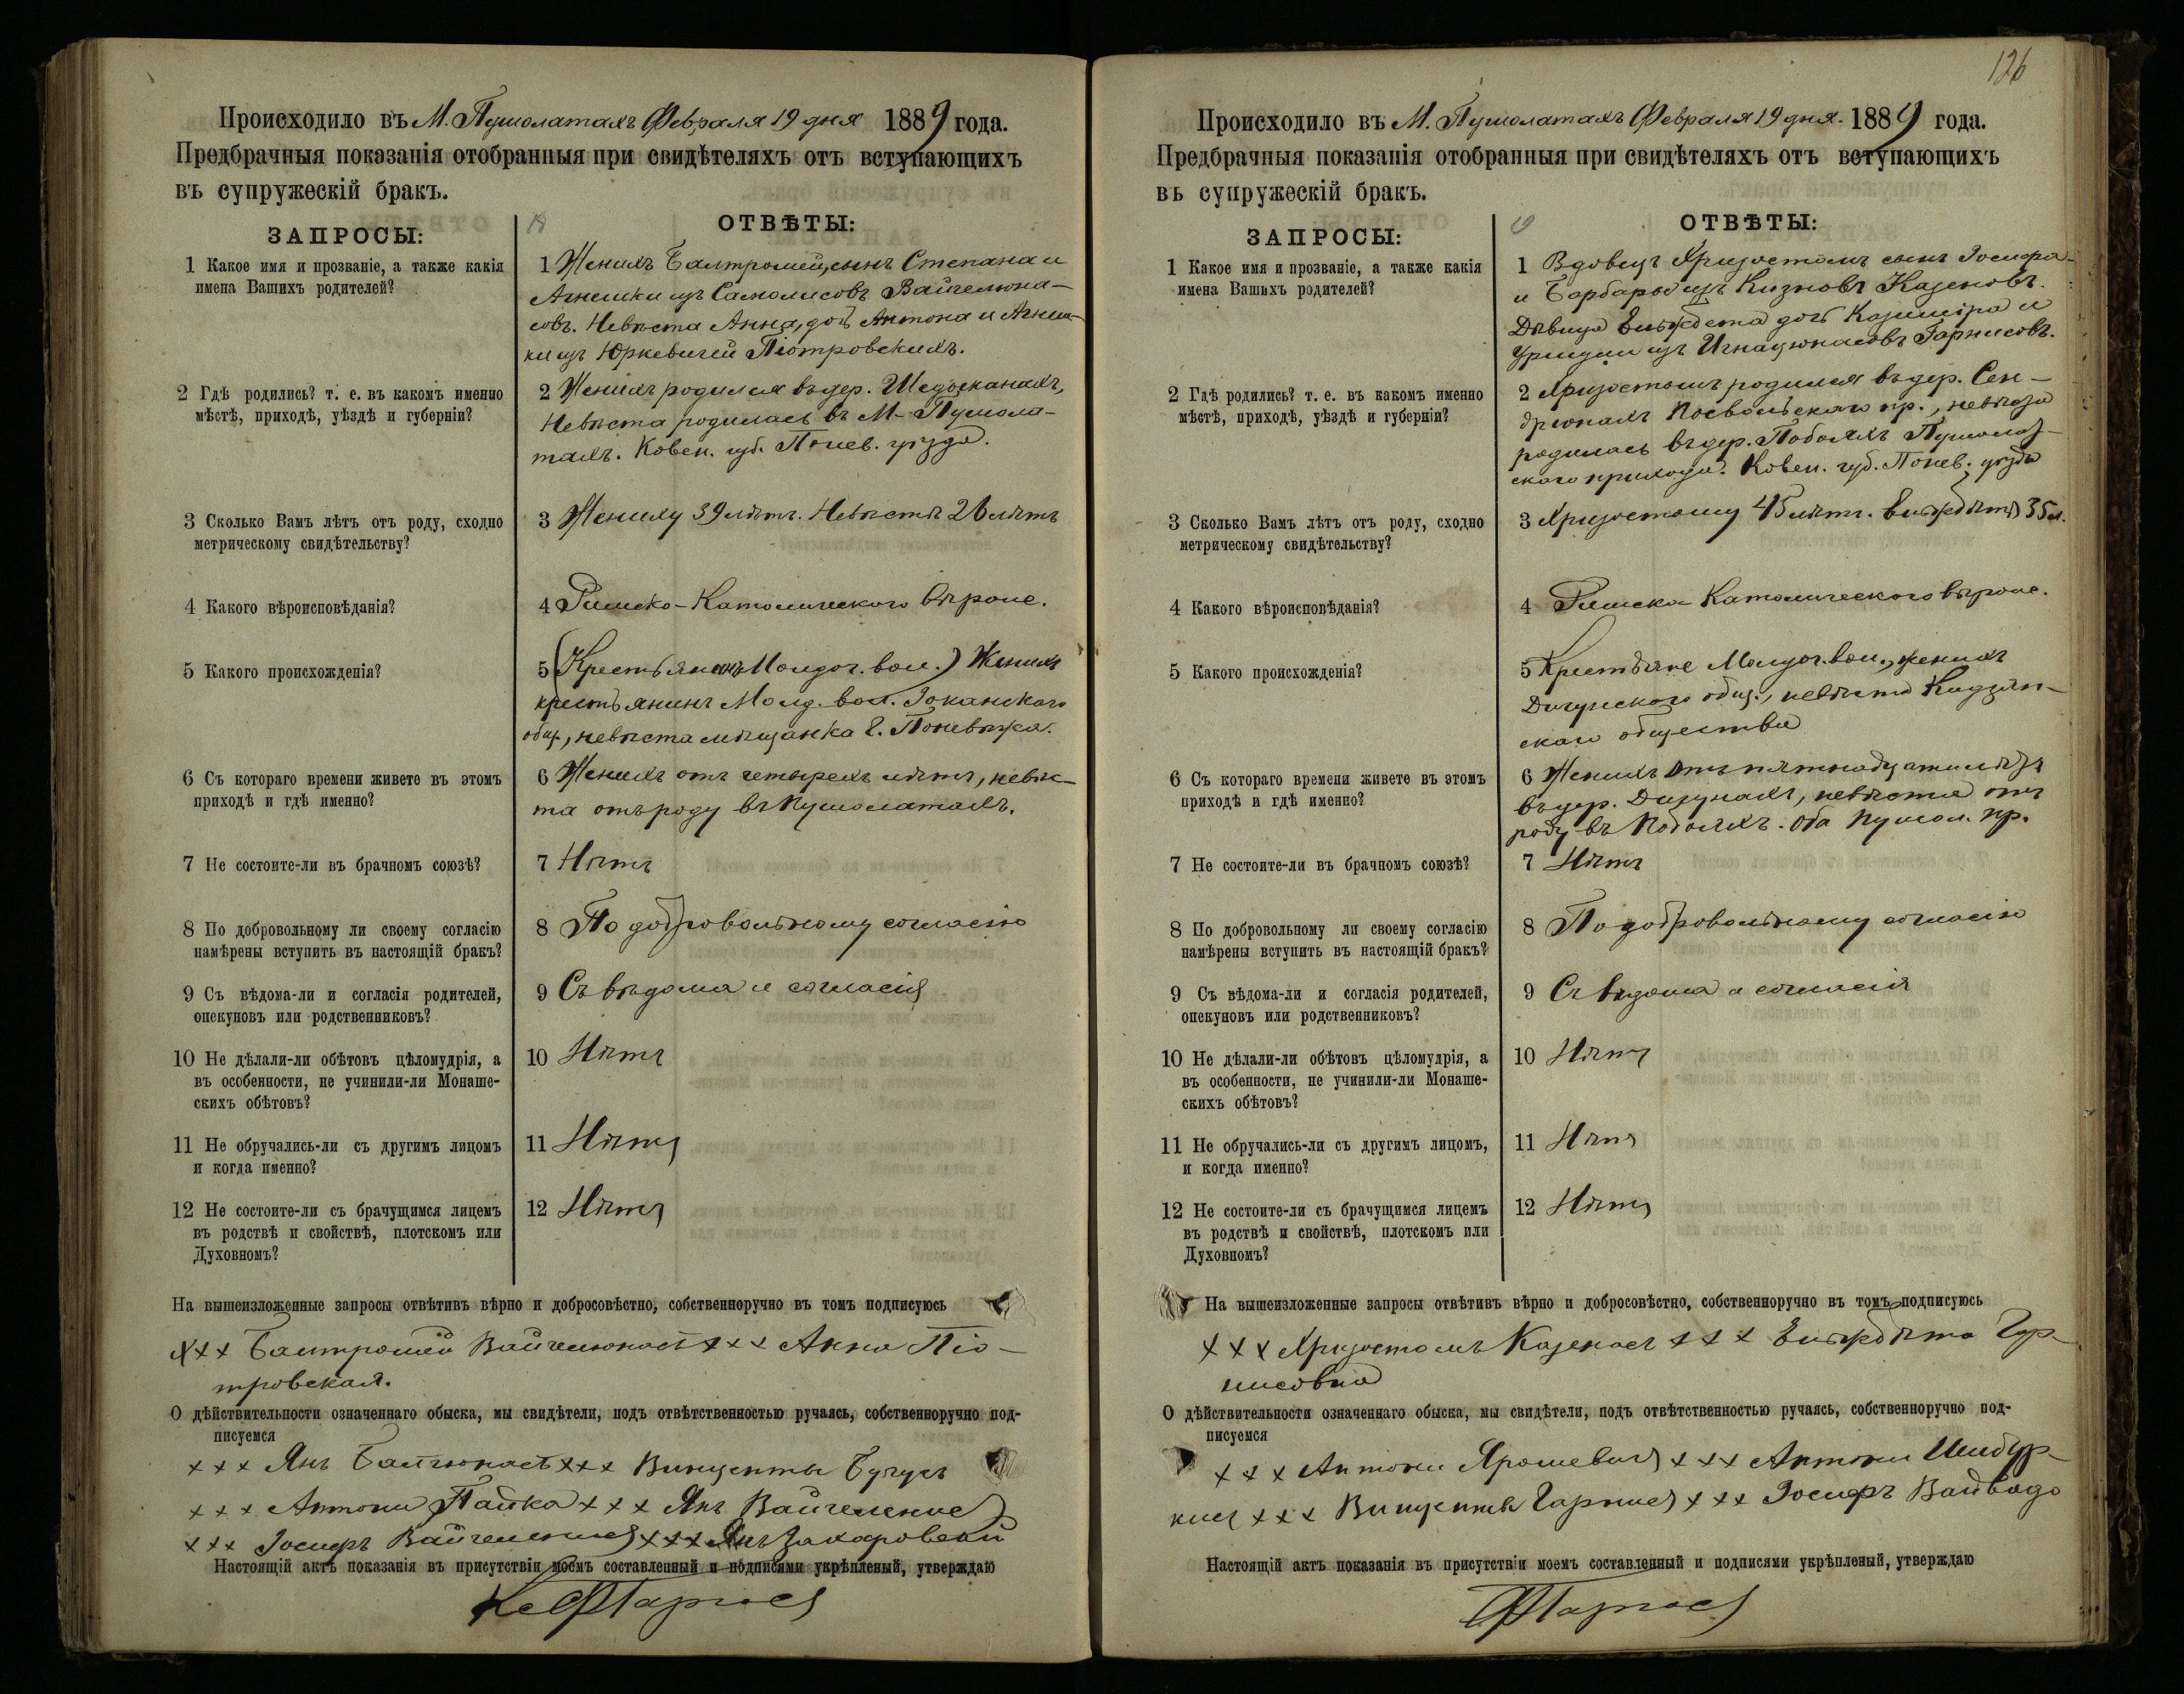 Происходило въ М. Пушолатахъ Февраля 19 дня 1889 года.
Предбрачныя показанія отобранныя при свидѣтеляхъ отъ вступающихъ
въ супружескій бракъ.
ЗАПРОСЫ:
18
ОТВѢТЫ:
1 Какое имя и прозваніе, а также какія
имена Вашихъ родителей?
1 Женихъ Балтромей, сынъ Степана и
Агнешки изъ Самолисовъ Вайчелюна-
совъ. Невѣста Анна, дочь Антона и Агнеш-
ки изъ Юркевичей Піотровскихъ.
2 Гдѣ родились? т. е. въ какомъ именно
мѣстѣ, приходѣ, уѣздѣ и губерніи?
2 Женихъ родился въ дер.
Невѣста родилась въ М. Пушола-
тахъ. Ковен. губ. Понев. уѣзда.
3 Сколько Вамъ лѣтъ отъ роду, сходно
метрическому свидѣтельству?
3 Жениху 39 лѣтъ. Невѣстѣ 26 лѣтъ
4 Какого вѣроисповѣданія?
4 Римско-Католического вѣроис.
5 Какого происхожденія?
5 (Крестьяне Молдоч. вол.) Женихъ
крестьянинъ Молд. вол. Іоканскаго
общ., невѣста мѣщанка г. Поневѣжа.
6 Съ котораго времени живете въ этомъ
приходѣ и гдѣ именно?
6 Женихъ отъ четырехъ лѣтъ, невѣс-
та отъ роду въ Пушолатахъ.
7 Не состоите-ли въ брачномъ союзѣ?
7 Нѣтъ
8 По добровольному ли своему согласію
намѣрены вступить въ настоящій бракъ?
8 По добровольному согласію
9 Съ вѣдома-ли и согласія родителей,
опекуновъ или родственниковъ?
9 Съ вѣдома и согласія
10 Не дѣлали-ли обѣтовъ цѣломудрія, а
въ особенности, не учинили-ли Монаше-
скихъ обѣтовъ?
10 Нѣтъ
11 Не обручались-ли съ другимъ лицомъ
и когда именно?
11 Нѣтъ
12 Не состоите-ли съ брачущимся лицемъ
въ родствѣ и свойствѣ, плотскомъ или
Духовномъ?
12 Нѣтъ
На вышеизложенные запросы отвѣтивъ вѣрно и добросовѣстно, собственноручно въ томъ подписуюсь
××× Балтромей Вайчелюнасъ ××× Анна Піо-
тровская.
О дѣйствительности означеннаго обыска, мы свидѣтели, подъ отвѣтственностью ручаясь, собственноручно под-
писуемся
××× Янъ ××× Винценты
××× Антони Пайка ××× Янъ Вайчеленис
××× Іосифъ Вайчеленис ××× Янъ Захаровски
Настоящій актъ показанія въ присутствіи моемъ составленный и подписями укрѣпленый, утверждаю
126
Происходило въ М. Пушолатахъ Февраля 19 дня. 1889 года.
Предбрачныя показанія отобранныя при свидѣтеляхъ отъ вступающихъ
въ супружескій бракъ.
ЗАПРОСЫ:
ОТВѢТЫ:
1 Какое имя и прозваніе, а также какія
имена Вашихъ родителей?
1 Вдовецъ Хризостомъ сынъ Іосифа
и Барбары изъ Казеновъ.
Дѣвица Ельжбѣта дочь Казиміра и
Уршули изъ Игнацюнасовъ Гарнисовъ.
2 Гдѣ родились? т. е. въ какомъ именно
мѣстѣ, приходѣ, уѣздѣ и губерніи?
2 Хризостомъ родился въ дер. Сен-
дрюнахъ Посвольскаго пр., невѣста
родилась въ дер. Побояхъ Пушолат-
скаго прихода. Ковен. губ. Понев. уѣзда
3 Сколько Вамъ лѣтъ отъ роду, сходно
метрическому свидѣтельству?
3 Хризостому 45 лѣтъ. Ельжбѣтѣ 35 л.
4 Какого вѣроисповѣданія?
4 Римско-Католическаго вѣроис.
5 Какого происхожденія?
5 Крестьяне Молдоч. вол., женихъ
общ., невѣста
скаго общества
6 Съ котораго времени живете въ этомъ
приходѣ и гдѣ именно?
6 Женихъ отъ пятнадцати лѣтъ
въ дер. невѣста отъ
роду въ Побояхъ. Оба Пушол. пр.
7 Не состоите-ли въ брачномъ союзѣ?
7 Нѣтъ
8 По добровольному ли своему согласію
намѣрены вступить въ настоящій бракъ?
8 По добровольному согласію
9 Съ вѣдома-ли и согласія родителей,
опекуновъ или родственниковъ?
9 Съ вѣдома и согласія
10 Не дѣлали-ли обѣтовъ цѣломудрія, а
въ особенности, не учинили-ли Монаше-
скихъ обѣтовъ?
10 Нѣтъ
11 Не обручались-ли съ другимъ лицомъ,
и когда именно?
11 Нѣтъ
12 Не состоите-ли съ брачущимся лицемъ
въ родствѣ и свойствѣ, плотскомъ или
Духовномъ?
12 Нѣтъ
На вышеизложенные запросы отвѣтивъ вѣрно и добросовѣстно, собственноручно въ томъ подписуюсь
××× Хризостомъ Казенасъ ××× Ельжбѣта Гар-
нисовна
О дѣйствительности означеннаго обыска, мы свидѣтели, подъ отвѣтственностью ручаясь, собственноручно под-
писуемся
××× Антони Ярошевич ××× Антони
××× Винценты Гарнис ××× Іосифъ Вайвадо
Настоящій актъ показанія въ присутствіи моемъ составленный и подписями укрѣпленый, утверждаю